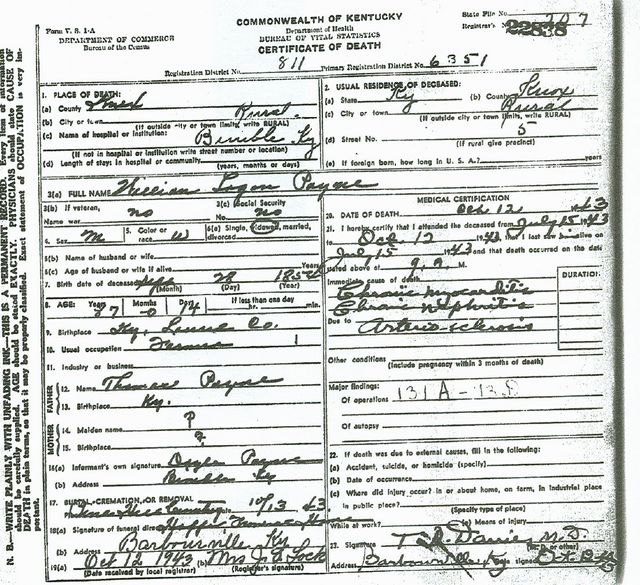 COMMONWEALTH OF KENTUCKY
State File No.
Form V. S. 1-A
Department of Health
Registrar's No. 207
22838
DEPARTMENT OF COMMERCE
BUREAU OF VITAL STATISTICS
Bureau of the Census
CERTIFICATE OF DEATH
Registration District No. 811 Primary Registration District No. 6351
1. PLACE OF DEATH:
(a) County Knox
(b) City or town Rural
(If outside city or town limits, write RURAL)
(c) Name of hospital or institution: Bimble Ky
(If not in hospital or institution write street number or location)
(d) Length of stays in hospital or community (years, months or days)
2. USUAL RESIDENCE OF DECEASED:
(a) State Ky (b) County Knox
(c) City or town Rural
(If outside city or town limits, write RURAL)
(d) Street No. 5
(If rural give precinct)
(e) If foreign born, how long in U. S. A.? years
3(a) FULL NAME William Logan Payne
3(b) If veteran, name war no
3(c) Social Security No. no
4. Sex M
5. Color or race W
6(a) Single, widowed, married, divorced
6(b) Name of husband or wife
6(c) Age of husband or wife if alive Years
7. Birth date of deceased Sept 28
(Month) (Day) (Year)
8. AGE: Years 87 Months 0 Days 14 If less than one day hr. min.
9. Birthplace Ky, Co.
10. Usual occupation Farmer
11. Industry or business
FATHER
12. Name Thomas Payne
13. Birthplace Ky.
MOTHER
14. Maiden name ?
15. Birthplace ?
16(a) Informant's own signature Payne
(b) Address Bimble Ky
17. BURIAL, CREMATION, OR REMOVAL
Cemetery 10/13 43
18(a) Signature of funeral director Hopper Funeral H
(b) Address Barbourville, Ky
19(a) Oct 12 1943 (b) Mrs J. D. Lock
(Date received by local registrar) (Registrar's signature)
MEDICAL CERTIFICATION
20. DATE OF DEATH Oct 12 1943
21. I hereby certify that I attended the deceased from July 15 1943
to Oct 12 1943, that I last saw alive on
July 15 1943 and that death occurred on the date
stated above at 9, a. M.
DURATION:
Immediate cause of death
Chronic myocarditis
Chronic nephritis
Due to Arterio-sclerosis
Other conditions
(Include pregnancy within 3 months of death)
Major findings:
Of operations 131A-
Of autopsy
22. If death was due to external causes, fill in the following:
(a) Accident, suicide, or homicide (specify)
(b) Date of occurrence
(c) Where did injury occur? in or about home, on farm, in industrial place
in public place?
(Specify type of place)
While at work? (e) Means of injury
23. Signature T. R. Davies M.D.
(M. D. or other)
Address Barbourville, Ky Date signed Oct
N. B.—WRITE PLAINLY WITH UNFADING INK—THIS IS A PERMANENT RECORD. Every item of information
should be carefully supplied. AGE should be stated EXACTLY. PHYSICIANS should state CAUSE OF
DEATH in plain terms, so that it may be properly classified. Exact statement of OCCUPATION is very im-
portant.